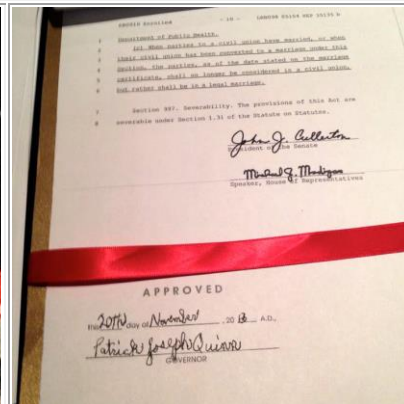 SB0010 Enrolled - 10 - LRB098 05166 HEP 35197 b
1 Department of Public Health.
2 (c) When parties to a civil union have married, or when
3 their civil union has been converted to a marriage under this
4 Section, the parties, as of the date stated on the marriage
5 certificate, shall no longer be considered in a civil union,
6 but rather shall be in a legal marriage.
7 Section 997. Severability. The provisions of this Act are
8 severable under Section 1.31 of the Statute on Statutes.
John J. Cullerton
President of the Senate
Michael J. Madigan
Speaker, House of Representatives
APPROVED
this 20th day of November, 2013 A.D.,
Patrick Joseph Quinn
GOVERNOR